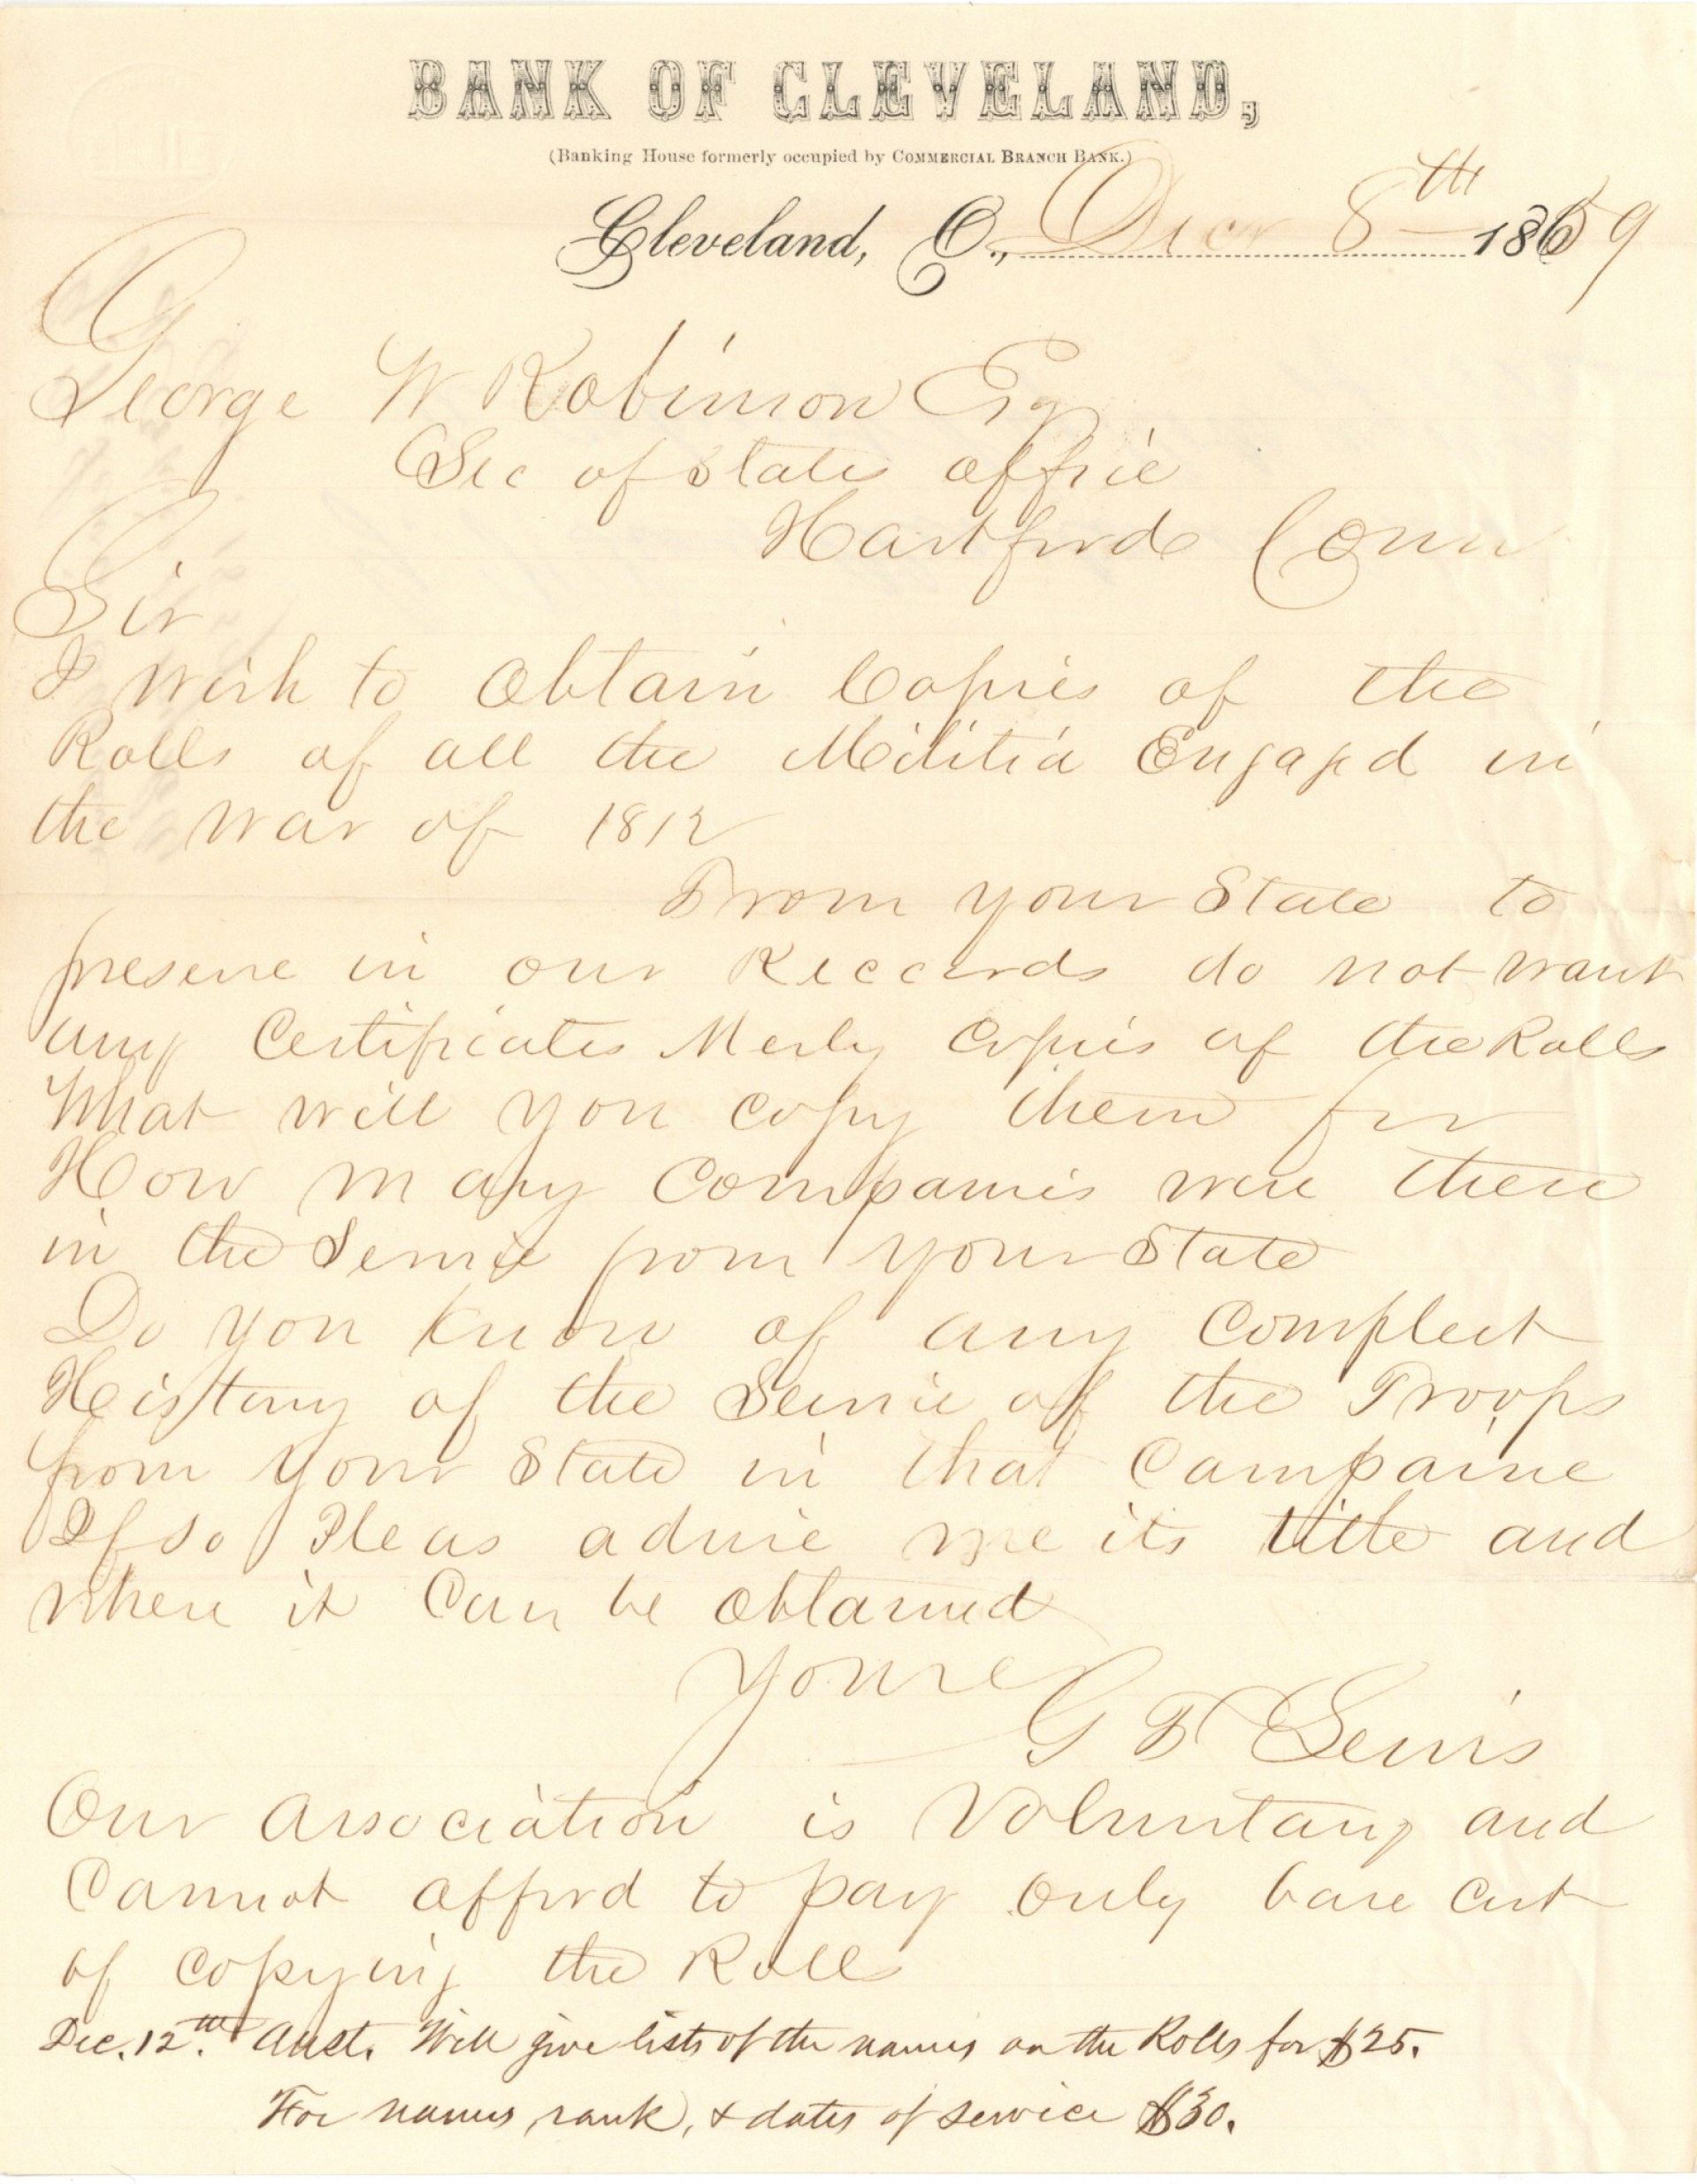 BANK OF CLEVELAND,
(Banking House formerly occupied by COMMERCIAL BRANCH BANK.)
Cleveland, O., Decr 8th 1859
George W Robinson Esq
Sec of State offic
Hartford Conn
Sir
I wish to Obtain Copies of the
Rolls of all the Militia Engagd in
the war of 1812
From your State to
preserve in our Reccords do not want
any Certificates Merly Copies of the Rolls
What will you copy them for
How many Companies were there
in the Service from your State
Do you know of any Compleet
History of the Service of the Troops
from your State in that Campaine
If so Pleas advise me its title and
where it Can be obtained
Yours
G F Lewis
Our Association is Voluntary and
Cannot afford to pay only bare Cost
of copying the Rolls
Dec. 12th. Anst. Will give lists of the names on the Rolls for $25.
For names, rank, & dates of service $30.